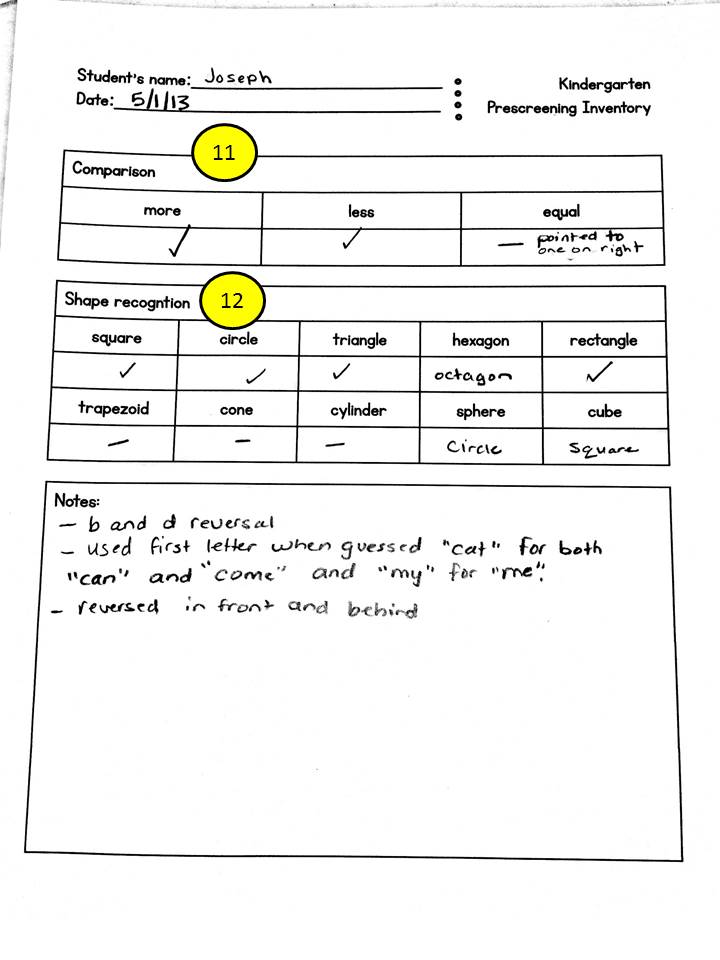 Student's name: Joseph
Kindergarten
Date: 5/1/13
Prescreening Inventory
11
Comparison
more less equal
✓ ✓ — pointed to
one on right
Shape recogntion 12
square circle triangle hexagon rectangle
✓ ✓ ✓ octagon ✓
trapezoid cone cylinder sphere cube
— — — Circle Square
Notes:
— b and d reversal
— used first letter when guessed "cat" for both
"can" and "come" and "my" for "me".
— reversed in front and behind